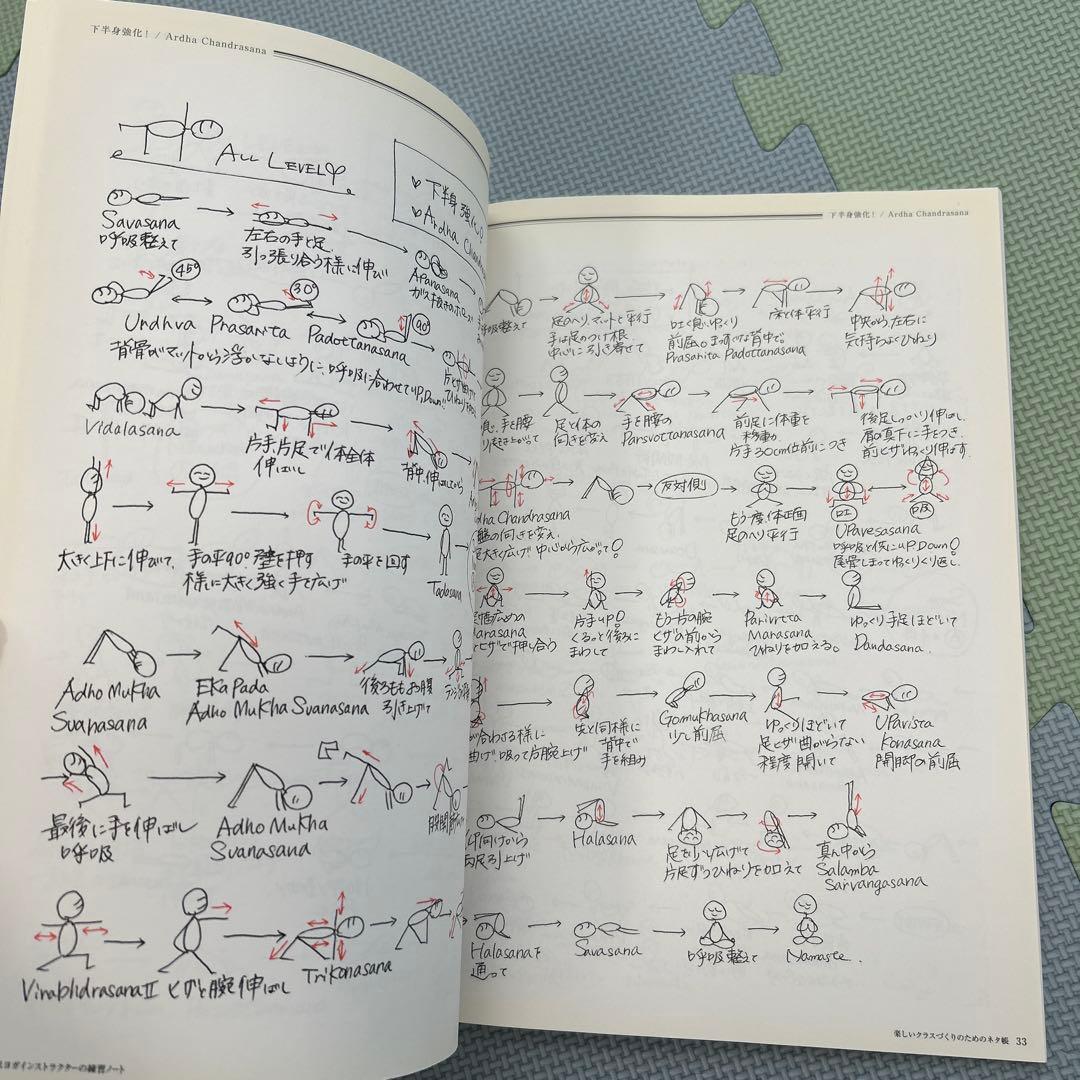 下半身強化! / Ardha Chandrasana
ALL LEVEL
♥ 下半身強化
♥ Ardha Chandr
Savasana
呼吸整えて
左右の手と足、
引っ張り合う様に伸び
Apanasana
45°
30°
90°
Urdhva Prasarita Padottanasana
背骨がマットから浮かないように、呼吸に合わせてUP, Down!
Vidalasana
片手、片足でT体全体
伸ばし
背中、伸ばしながら
大きく上下に伸びて、
手の平90°壁を押す
様に大きく強く手で広げ
手の平を回す
Tadasana
Adho Mukha
Svanasana
Eka Pada
Adho Mukha Svanasana
後ろもも、お腹
引き上げて
最後に手を伸ばし
呼吸
Adho Mukha
Svanasana
Virabhdrasana II
ヒザと腕伸ばし
Trikonasana
ヨガインストラクターの練習ノート
下半身強化! / Ardha Chandrasana
呼吸整えて
足のヘリ、マットと平行
手は足のつけ根
中心に引き寄せて
吐く息、ゆっくり
前屈。まっすぐな背中で
Prasarita Padottanasana
床と体平行
中央から左右に
気持ちよくひねり
手を腰
起き上がって
足と体の
向きを変え
手を腰の
Parsvottanasana
前足に体重を
移動。
片手30cm位前につき
後足しっかり伸ばし、
肩の真下に手をつき、
前ヒザゆっくり伸ばす。
dha Chandrasana
の向きを変え、
大きく広げ 中心から広がって!
反対側
もう一度、体正面
足のヘリ平行
吐
吸
UPavesasana
呼吸と供にUP, Down!
尾骨しまってゆっくりくり返し、
幅広めの
arasana
ヒザで押し合う
片手UP!
くるっと後ろに
まわして
もう一方の腕
ヒザの前から
まわし入れて
Parivrtta
Marasana
ひねりを加える。
ゆっくり手足ほどいて
Dandasana.
合わせる様に
曲げ、吸って片腕上げ
先と同様に
背中で
手を組み
Gomukhasana
少し前屈
ゆっくりほどいて
足ヒザ曲がらない
程度開いて
UPavista
Konasana
開脚の前屈
仰向けから
両足引上げ
Halasana
足を少し広げて
片足ずつひねりを加えて
真ん中から
Salamba
Sarvangasana
Halasanaを
通って
Savasana
呼吸整えて
Namaste.
楽しいクラスづくりのためのネタ帳 33